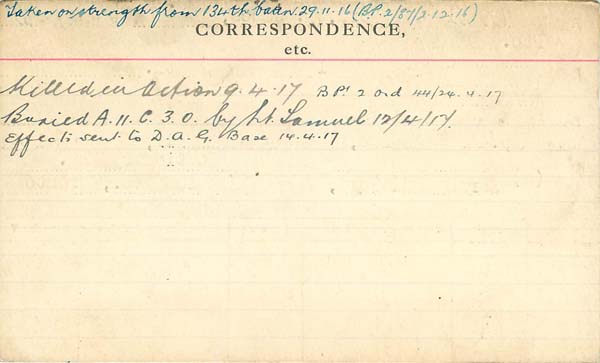 Taken on strength from 134th. batn. 29.11.16 (B.P. 2/87/2.12.16)
CORRESPONDENCE,
etc.
Killed in Action 9.4.17 BP! 2 ord 44/24.4.17
Buried A.11.C.3.0. by Lt. Samuel 12/4/17.
Effects sent to D.A.G. Base 14.4.17